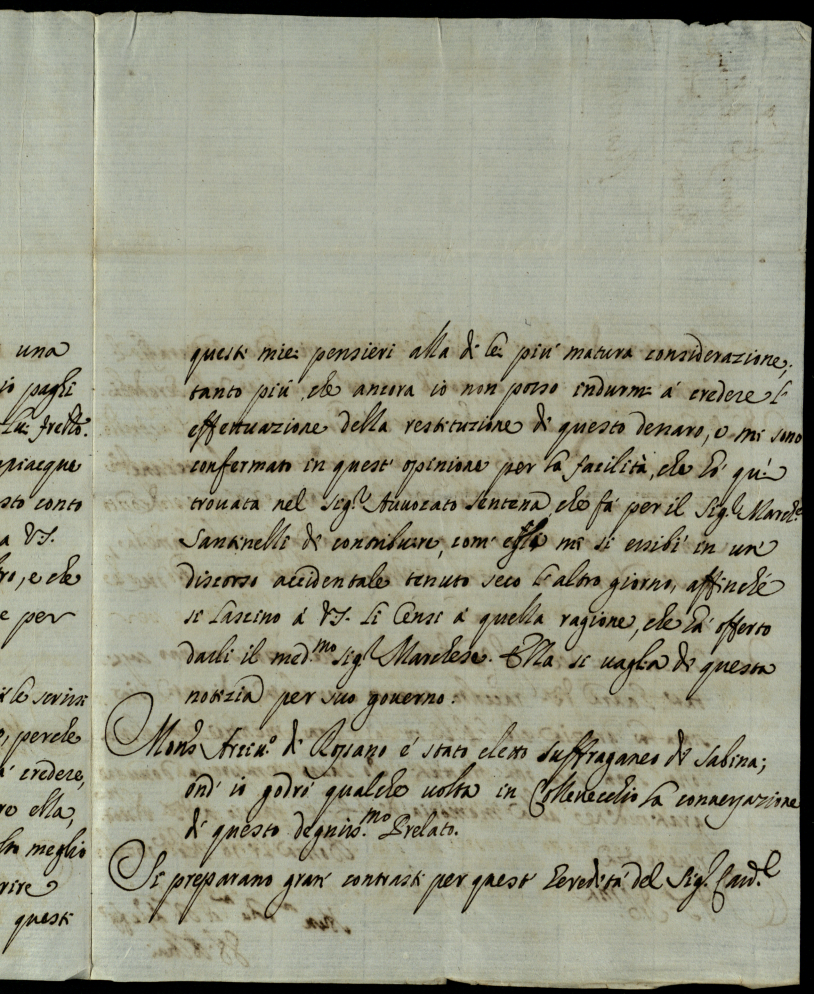 una
io paghi
Lui fretto.
piacque
sto conto
a VS.
ro, e che
e per
le scrissi
, perche
a' credere,
re ella,
lto meglio
rire
questi
questi miei pensieri alla di lei più matura considerazione;
tanto più, che ancora io non posso indurmi á credere l'
effettuazione della restituzione di questo denaro, e mi sono
confermato in quest' opinione per la facilità, che hó quì
trovata nel Sig.r Avvocato Sentena, che fá per il Sig.r March.e
Santinelli di contribuire, com' essa mi si essibì in un'
discorso accidentale tenuto seco l'altro giorno, affinché
si lascino á VS. li Censi á quella ragione, che há offerto
darli il med.mo Sig.r Marchese. Ella si vaglia di questa
notizia per suo governo.
Mons. Arciv.o di Rossano é stato eletto suffraganeo di Sabina;
ond' io godrò qualche volta in Collevecchio la conversazione
di questo degniss.mo Prelato.
Si preparano gran' contrasti per quest' heredità del Sig.r Card.l